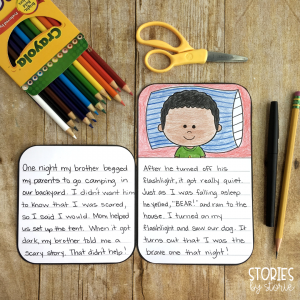 Crayola
One night my brother begged
my parents to go camping in
our backyard. I didn't want him
to know that I was scared,
so I said I would. Mom helped
us set up the tent. When it got
dark, my brother told me a
scary story. That didn't help!
After he turned off his
flashlight, it got really quiet.
Just as I was falling asleep
he yelled, "BEAR!" and ran to the
house. I turned on my
flashlight and saw our dog. It
turns out that I was the
brave one that night!
STORIES
by storie